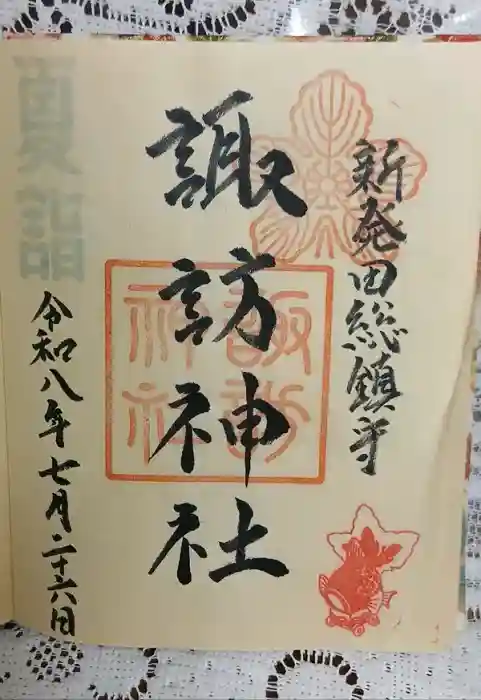 新発田総鎮守
諏訪神社
諏訪神社
夏詣
令和八年七月二十六日